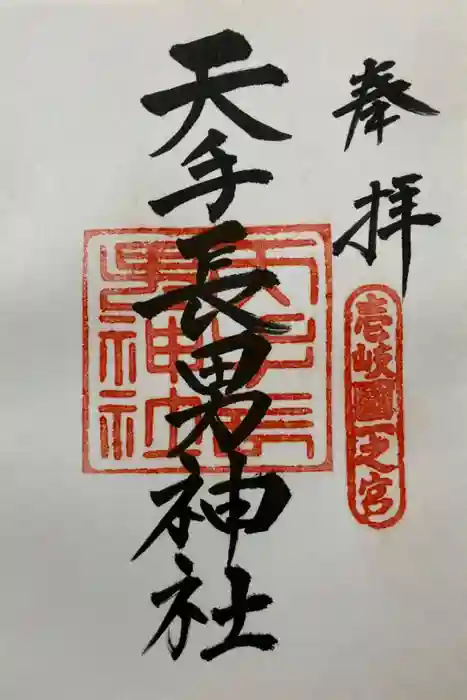 奉拝
壱岐國一之宮
天手長男神社
天手長男神社